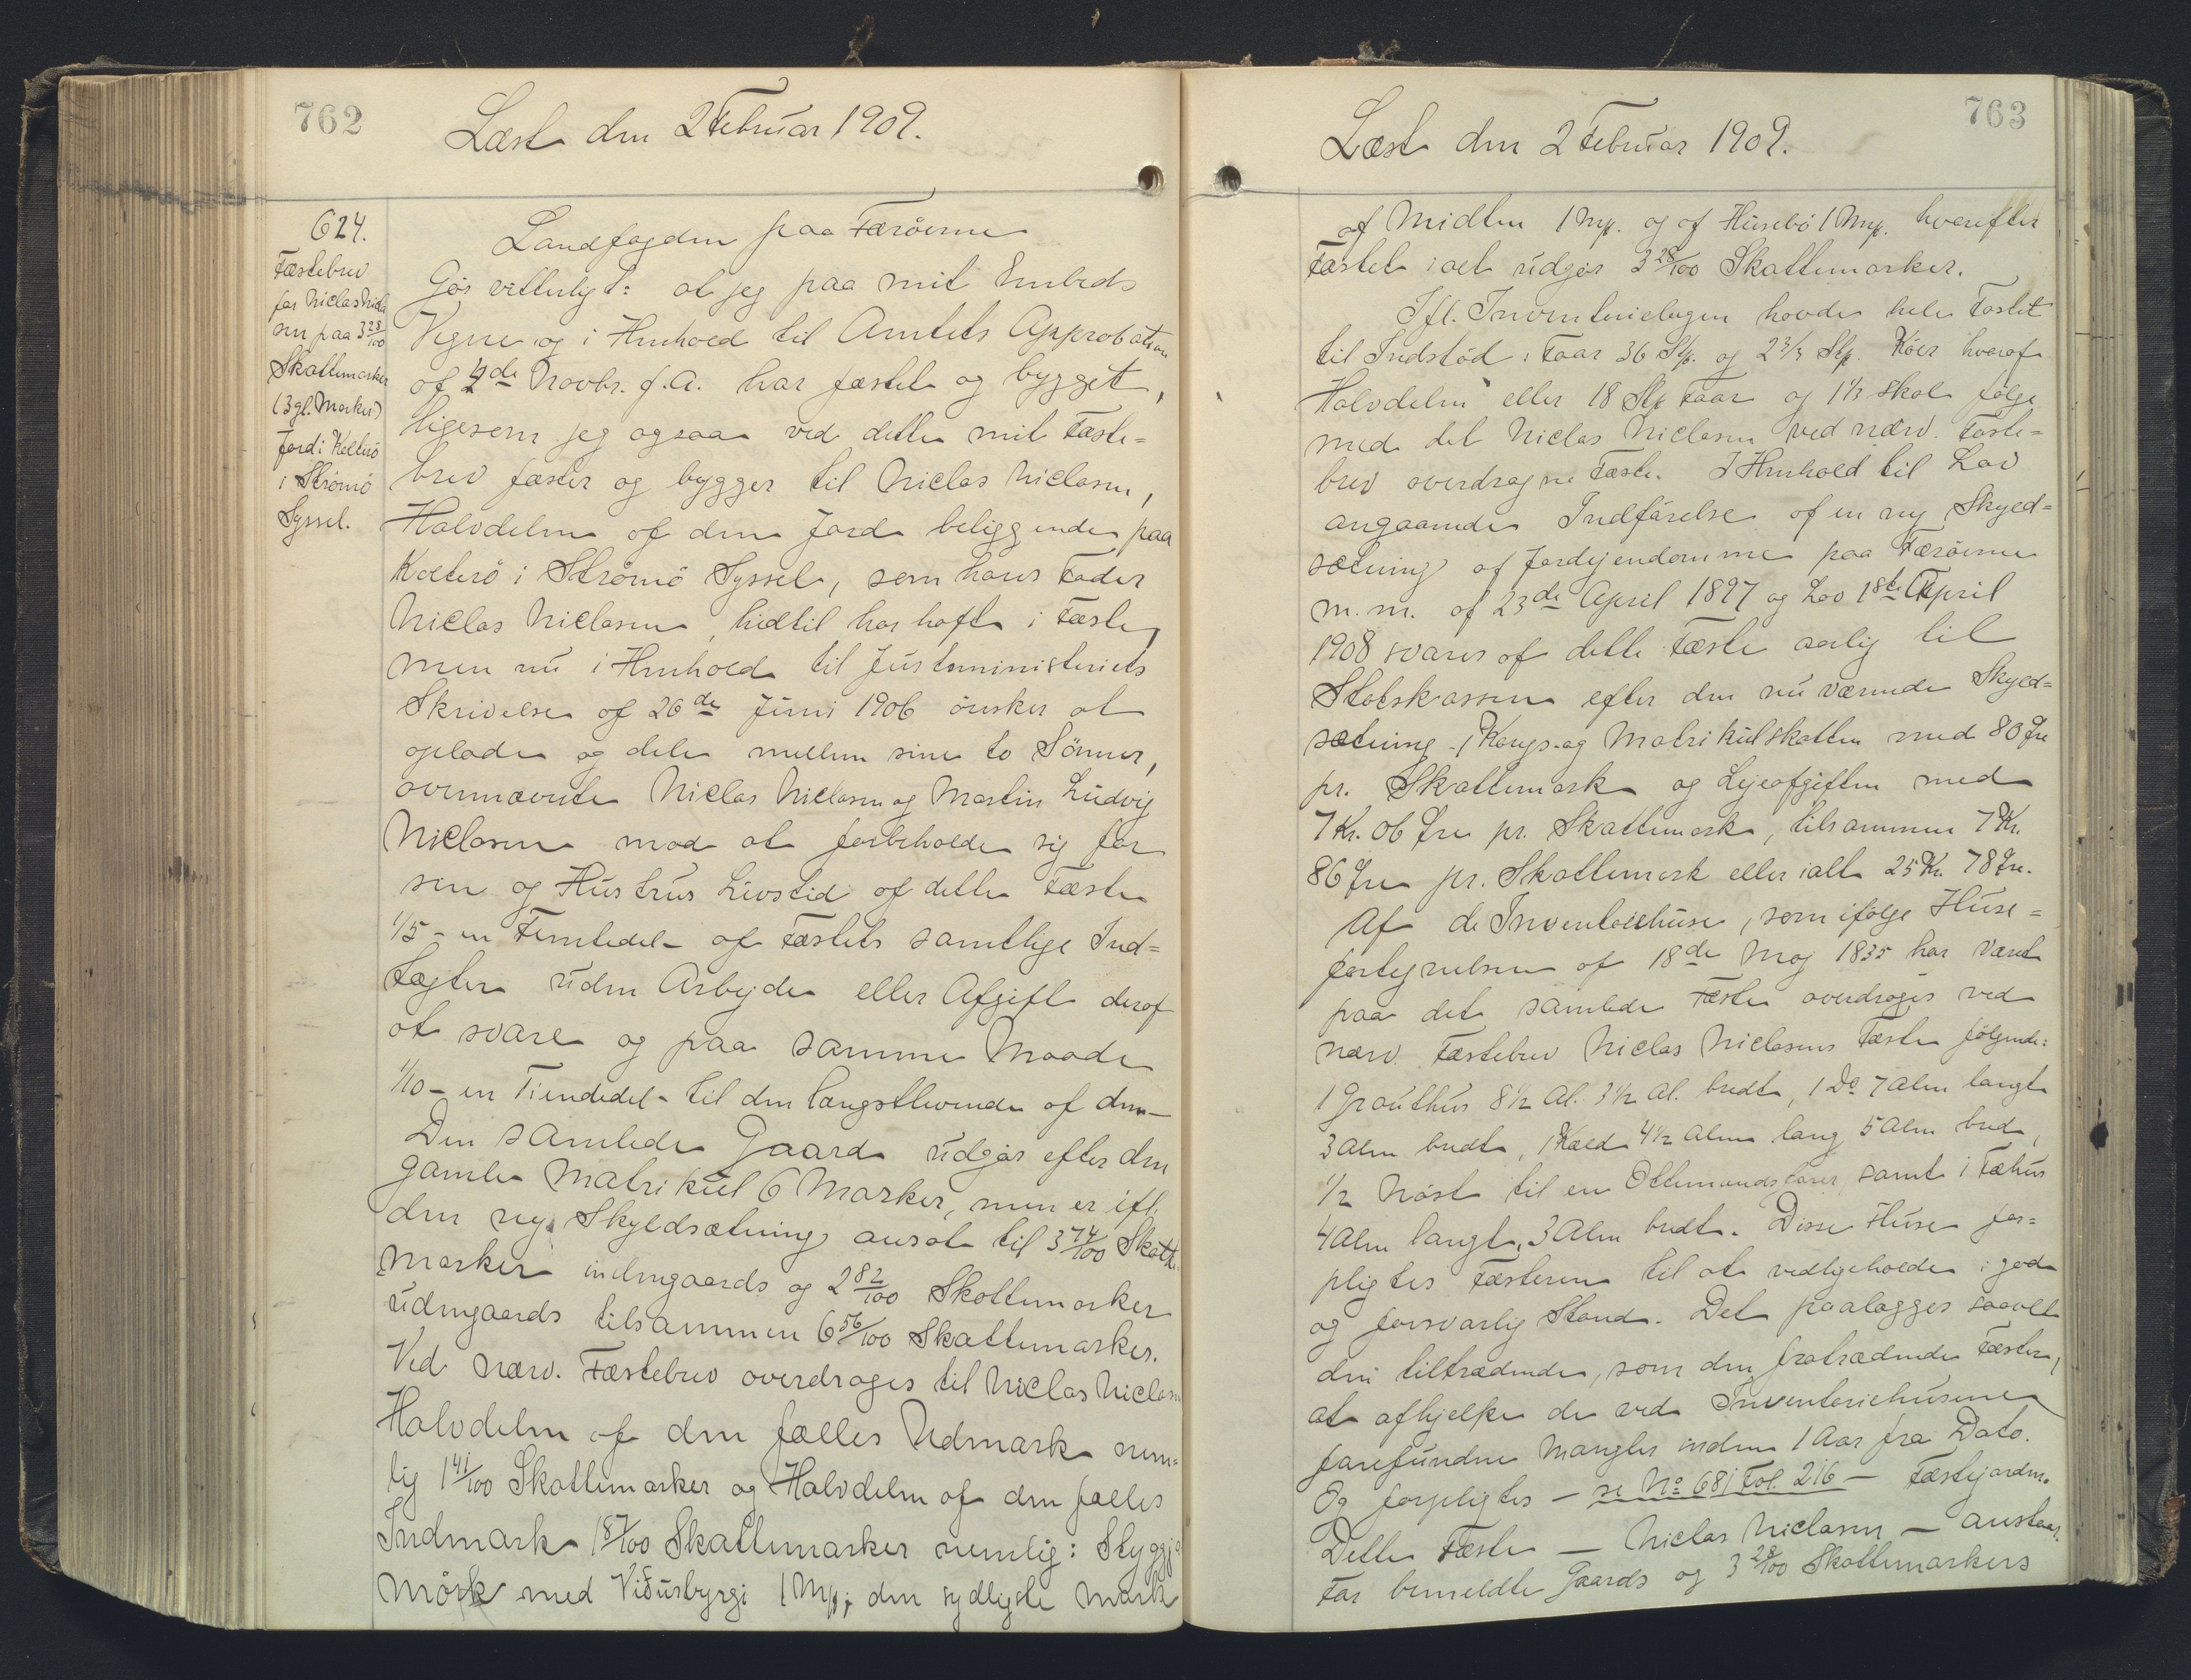 762
Læst den 2 Februar 1909.
624.
Fæstebrev
for Niclas Nicla
sen paa 3 28/100
Skattemarker
(3 gl. Marker)
Jord i Kolterø
i Strömö
Syssel.
Landfogden paa Færöerne
Gör vitterligt: at jeg paa mit Embeds
Vegne og i Henhold til Amtets Approbation
af 4de Novbr. f. A. har fæstet og bygget,
ligesom jeg ogsaa ved dette mit Fæste=
brev fæster og bygger til Niclas Niclasen,
Halvdelen af den Jord beliggende paa
Kolterö i Strömö Syssel, som hans Fader
Niclas Niclasen, hidtil har haft i Fæste,
men nu i Henhold til Justsministeriets
Skrivelse af 26de Juni 1906 önsker at
oplade og dele mellem sine to Sönner,
ovennævnte Niclas Niclasen og Martin Ludvig
Niclasen mod at forbeholde sig for
sin og Hustrus Livstid af dette Fæste
1/5 - en Femtedel - af Fæstets samtlige Ind=
tægter uden Arbejde eller Afgift deraf
at svare og paa samme Maade
1/10 - en Tiendedel - til den længstlevende af dem -
Den samlede Gaard udgör efter den
gamle Matrikul 6 Marker, men er ifl.
den nye Skyldsætning ansat til 3 74/100 Skatte
marker indengaards og 2 82/100 Skattemarker
udengaards tilsammen 6 56/100 Skattemarker.
Ved nærv. Fæstebrev overdrages til Niclas Niclasen
Halvdelen af den fælles Udmark nem=
lig 1 41/100 Skattemarker og Halvdelen af den fælles
Indmark 1 87/100 Skattemarker nemlig: Styggja
Mørk med Viðusbyrgi 1 Mp; den sydligste Mark
763
Læst den 2 Februar 1909.
af Midten 1 Mp. og af Húsebö 1 Mp. hvorefter
Fæstet ialt udgör 3 28/100 Skattemarker.
Ifl. Inventarielagen havde hele Fæstet
til Indstöd i Faar 36 Stp. og 2 2/3 Stp. Köer hvoraf
Halvdelen eller 18 Stp Faar og 1 1/3 skal følge
med det Niclas Niclasen ved nærv. Fæste=
brev overdragne Fæste. I Henhold til Lov
angaaende Indförelse af en ny Skyld=
sætning af Jordejendomme paa Færöerne
m.m. af 23de April 1897 og Lov 1ste April
1908 svares af dette Fæste aarlig til
Statskassen efter den nuværende Skyld=
sætning - Kongs- og Matrikulskatten med 80 Øre
pr. Skattemark og Lejeafgiften med
7 Kr. 06 Øre pr. Skattemark, tilsammen 7 Kr.
86 Øre pr. Skattemark eller ialt 25 Kr. 78 Øre.
Af de Inventariehuse, som ifølge Huse=
fortegnelsen af 18de Maj 1835 har været
paa det samlede Fæste overdrages ved
nærv. Fæstebrev Niclas Niclasens Fæste følgende:
1 Grouthus 8 1/2 Al. 3 1/2 Al. bredt, 1 Do 7 Alen langt
3 Alen bredt, 1 Kæld 4 1/2 Alen lang 5 Alen bred,
1/2 Nöst til en Ottemandsfarer, samt 1 Fæhus
4 Alen langt, 3 Alen bredt. Disse Huse for=
pligtes Fæsteren til at vedligeholde i god
og forsvarlig Stand. Det paalægges saavel
den tiltrædende, som den fratrædende Fæster,
at afhjelpe de ved Inventariehusene
forefundne Mangler inden 1 Aar fra Dato.
Og forpligtes - se No 68 i Fol. 216 - Fæstejorden.
Dette Fæste - Niclas Niclasen - anstaar
For bemeldte Gaards og 3 28/100 Skattemarkers